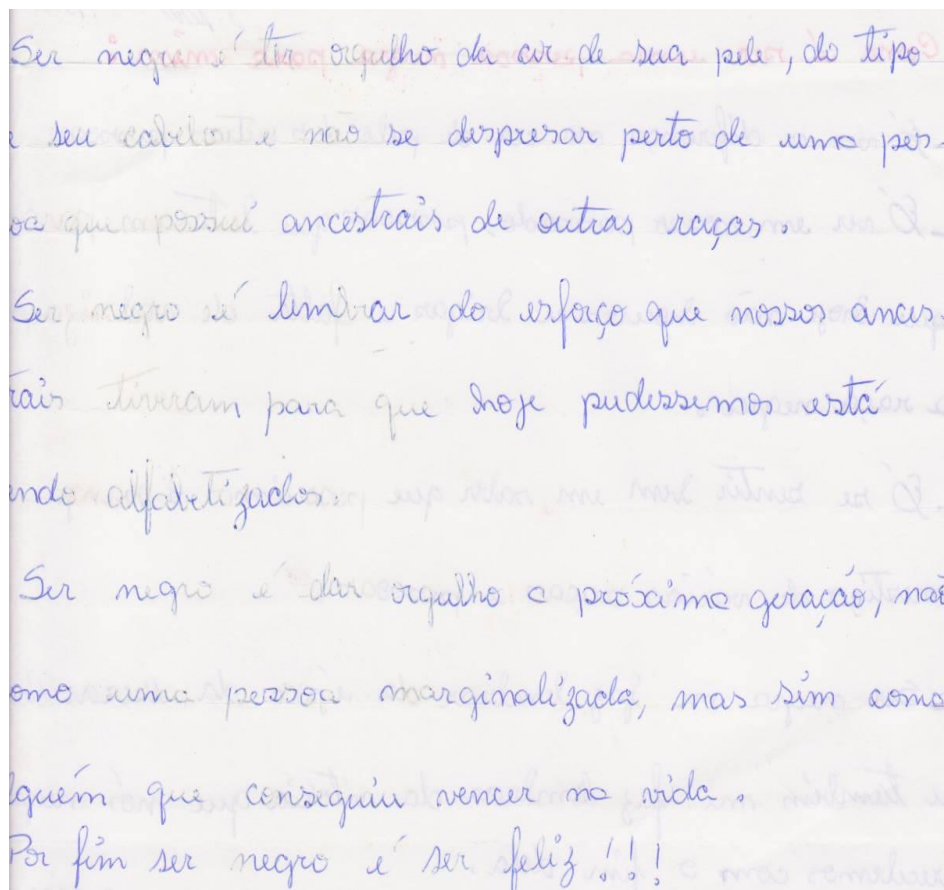 Ser negro é ter orgulho da cor de sua pele, do tipo
e seu cabelo é não se despresar perto de uma pes-
oa que possui ancestrais de outras raças.
Ser negro é lembrar do esforço que nossos ances
rais tiveram para que hoje pudessemos está
endo alfabetizados.
Ser negro é dar orgulho a próxima geração, não
omo uma pessoa marginalizada, mas sim como
lguém que conseguiu vencer na vida.
Por fim ser negro é ser feliz!!!